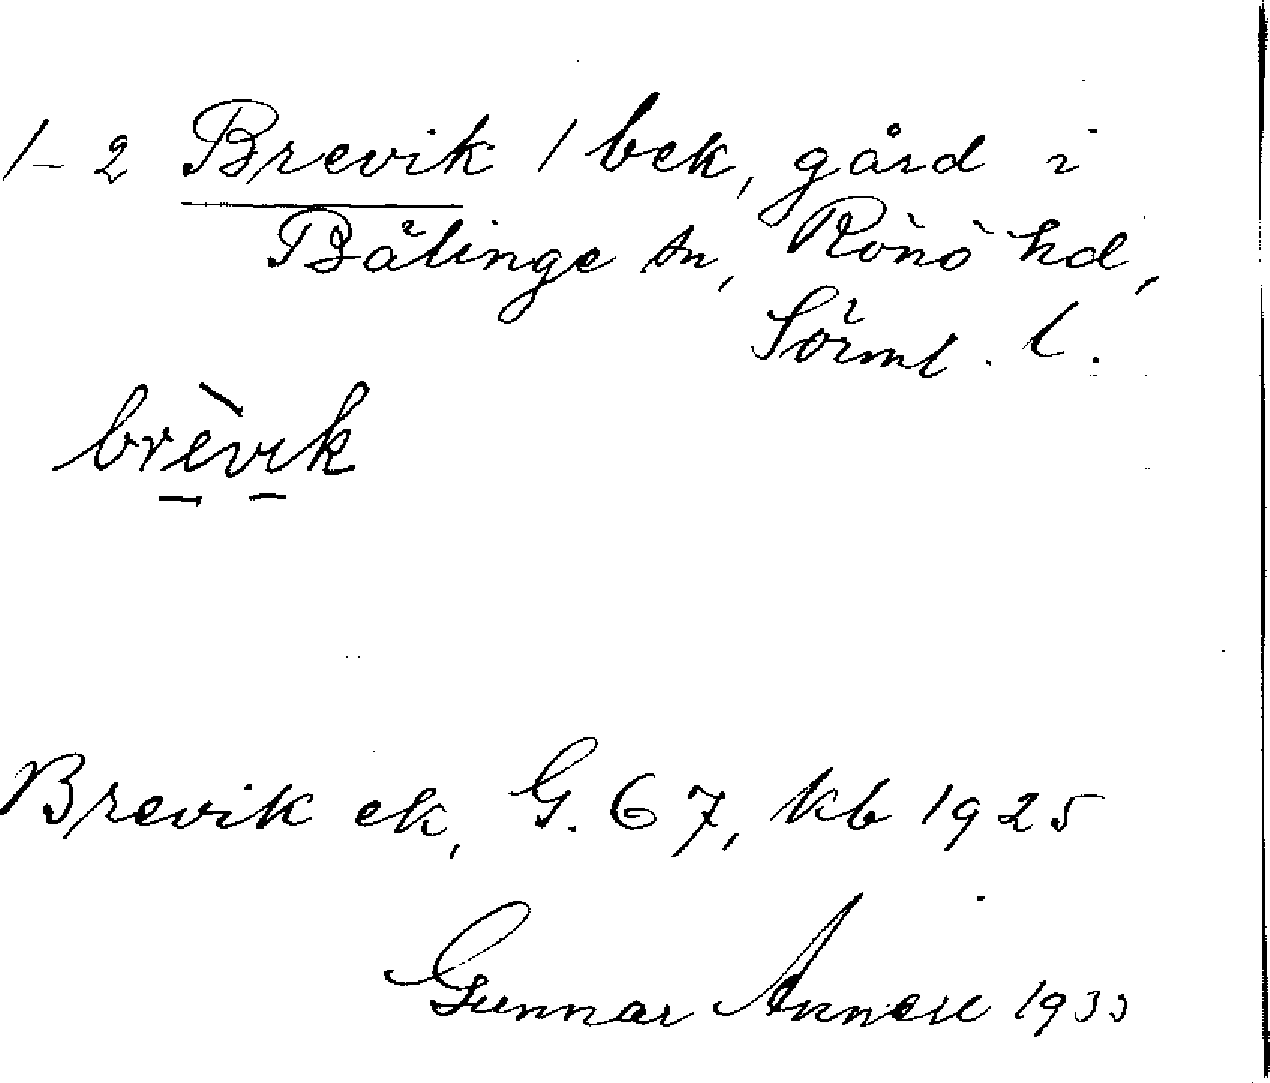 1-2 Brevik / bek, gård i
Bälinge sn, Rönö hd,
Sörml. l.
brèvik
Brevik ek, G. 67, kb 1925
Gunnar 1933